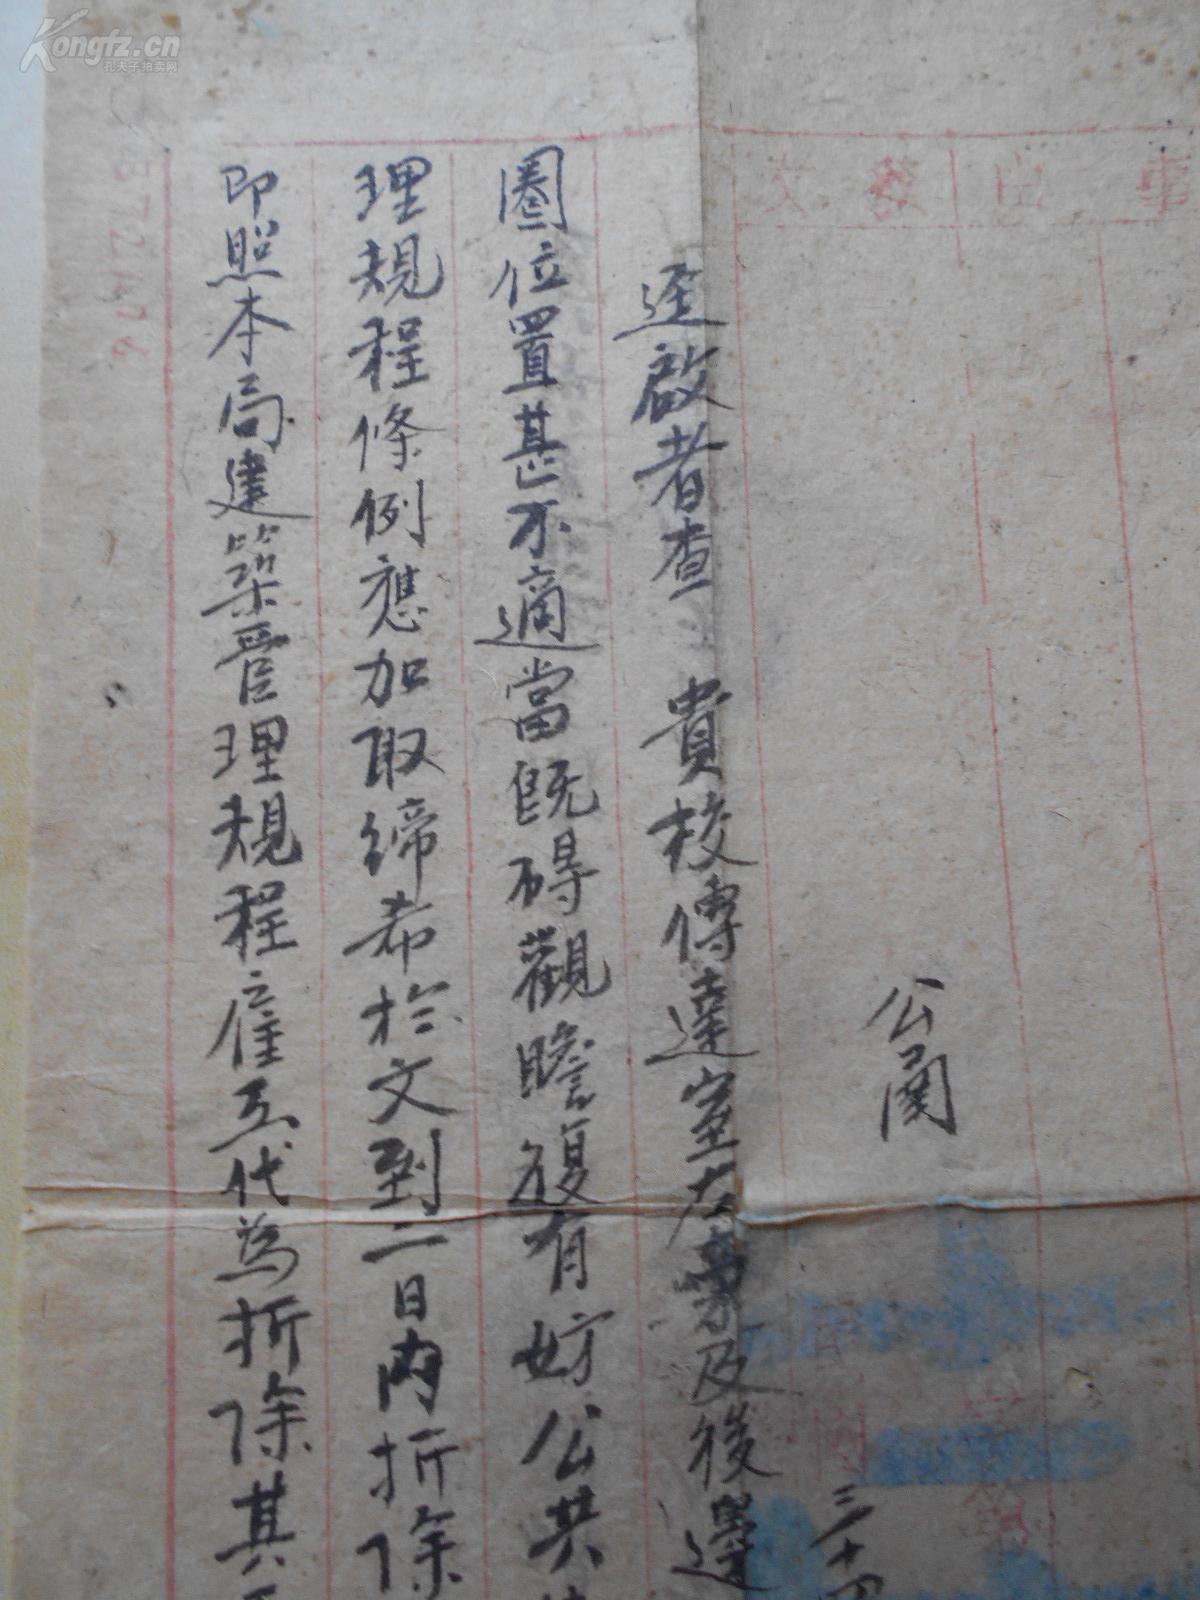 Kongfz.cn
孔夫子拍卖网
公函
三十四
逕啟者查 貴校傳達室左旁及後邊
圈位置甚不適當既碍觀瞻復有妨公共
理規程條例應加取締希於文到二日內折除
即照本局建築管理規程雇工代為折除其